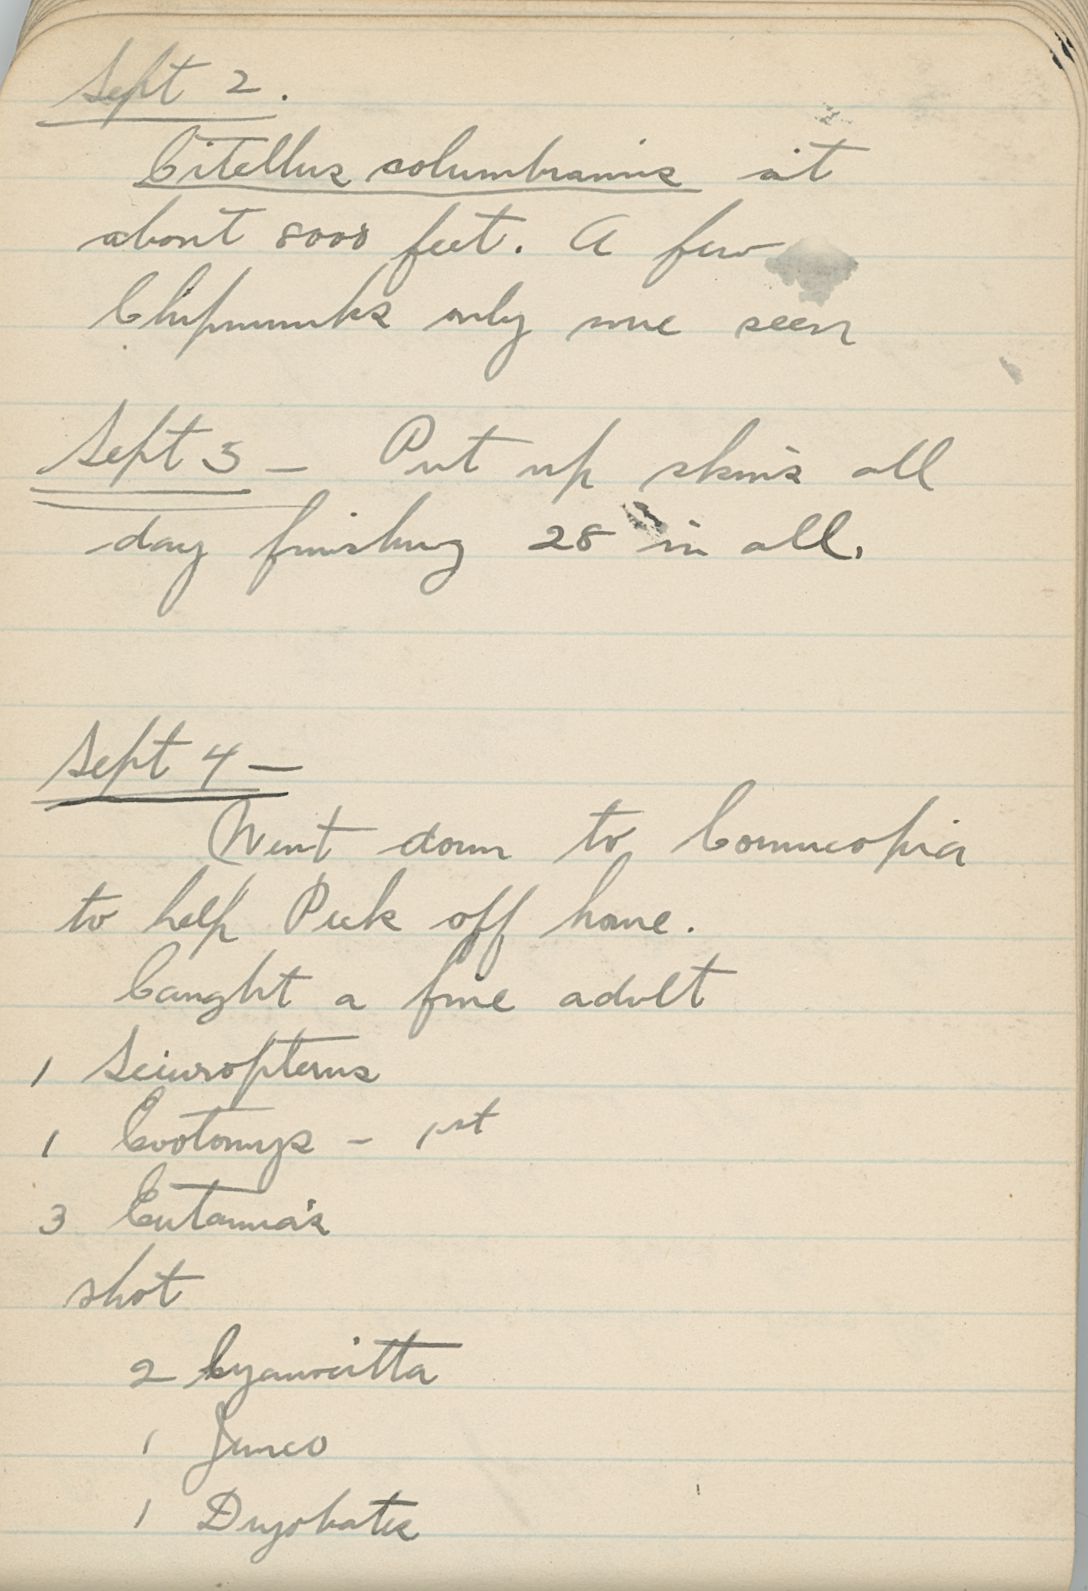 Sept 2.
Citellus columbianus at
about 8000 feet. A few
Chipmunks only one seen
Sept 3 – Put up skins all
day finishing 28 in all.
Sept 4 –
Went down to Cornucopia
to help Peck off home.
Caught a fine adult
1 Sciuropterus
1 Evotomys – 1st
3 Eutamia's
shot
2 Cyanocitta
1 Junco
1 Dryobates